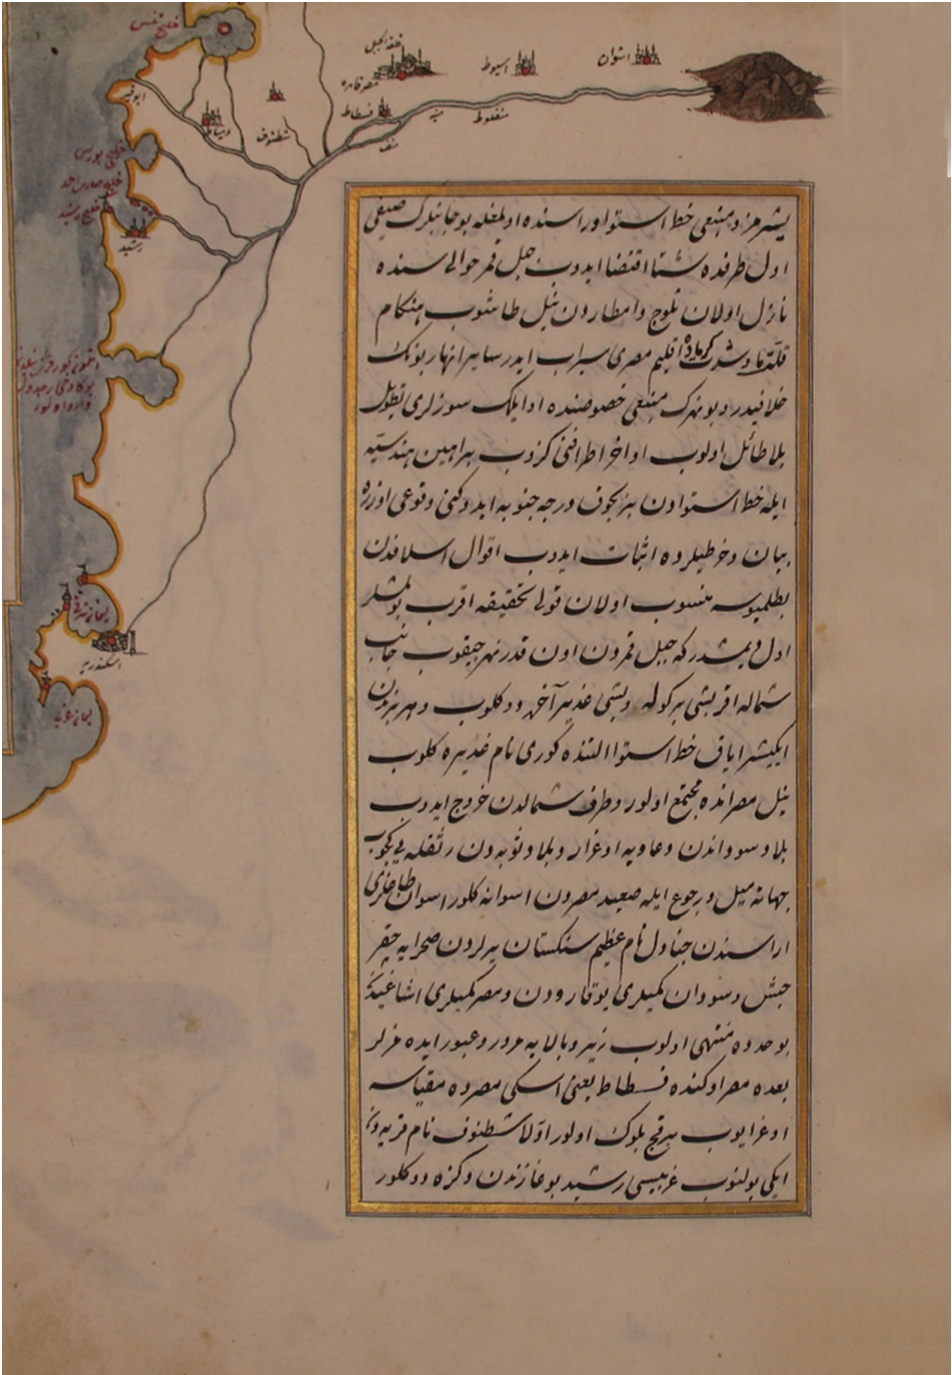 خليج تنس
قلعة الجبل
مصر قاهره
اسيوط
اسوان
ابوقير
دمياط
شطنوف
فسطاط
منف
منيه
منفلوط
خليج بورلس
خليج رشيد
رشيد
اسكندريه
يشرمز و منبعى خط استوا وراسنده اولمغله بو جانبلرك صيفى
اول طرفده شتا اقتضا ايدوب جبل قمر حوالى سنده
نازل اولان ثلوج و امطاردن نيل طاشوب هنكام
اقليم مصرى سيراب ايدر ساير انهار بونك
خلافيدر و بو نهرك منبعى خصوصنده اوايلك سوزلرى
بلا طائل اولوب اواخر اطرافنى كزوب براهين هندسيه
ايله خط استوادن بر بچوق درجه جنوبه ايدوكنى وقوعى اوزره
بيان و خرطيلرده اثبات ايدوب اقوال اسلافدن
بطلميوسه منسوب اولان قولى تحقيقه اقرب بولمشلر
اول ديمشدر كه جبل قمردن اون قدر نهر چيقوب جانب
شماله اقربشى بر كوله و بشى غدير آخره دوكلوب و هر بريندن
ايكيشر اياق خط استوا التنده كورى نام غديره كلوب
نيل مصر انده مجتمع اولور و طرف شمالدن خروج ايدوب
بلاد سوداندن و علويه اوغرار و بلاد نوبه دن دنقله يى كچوب
جهاته ميل و رجوع ايله صعيد مصردن اسوانه كلور اسوان طاغلرى
اراسندن جنادل نام عظيم سنكستان يرلردن صحرايه چقر
حبش و سودان كميلرى يوقارودن و مصر كميلرى اشاغيدن
بو حدوده منتهى اولوب زير و بالايه مرور و عبور ايده مزلر
بعده مصر اوكنده فسطاط يعنى اسكى مصرده مقياسه
اوغرايوب بر قچ بلوك اولور اولا شطنوف نام قريه دن
ايكى بولنوب غربيسى رشيد بوغازندن دكزه دوكلور